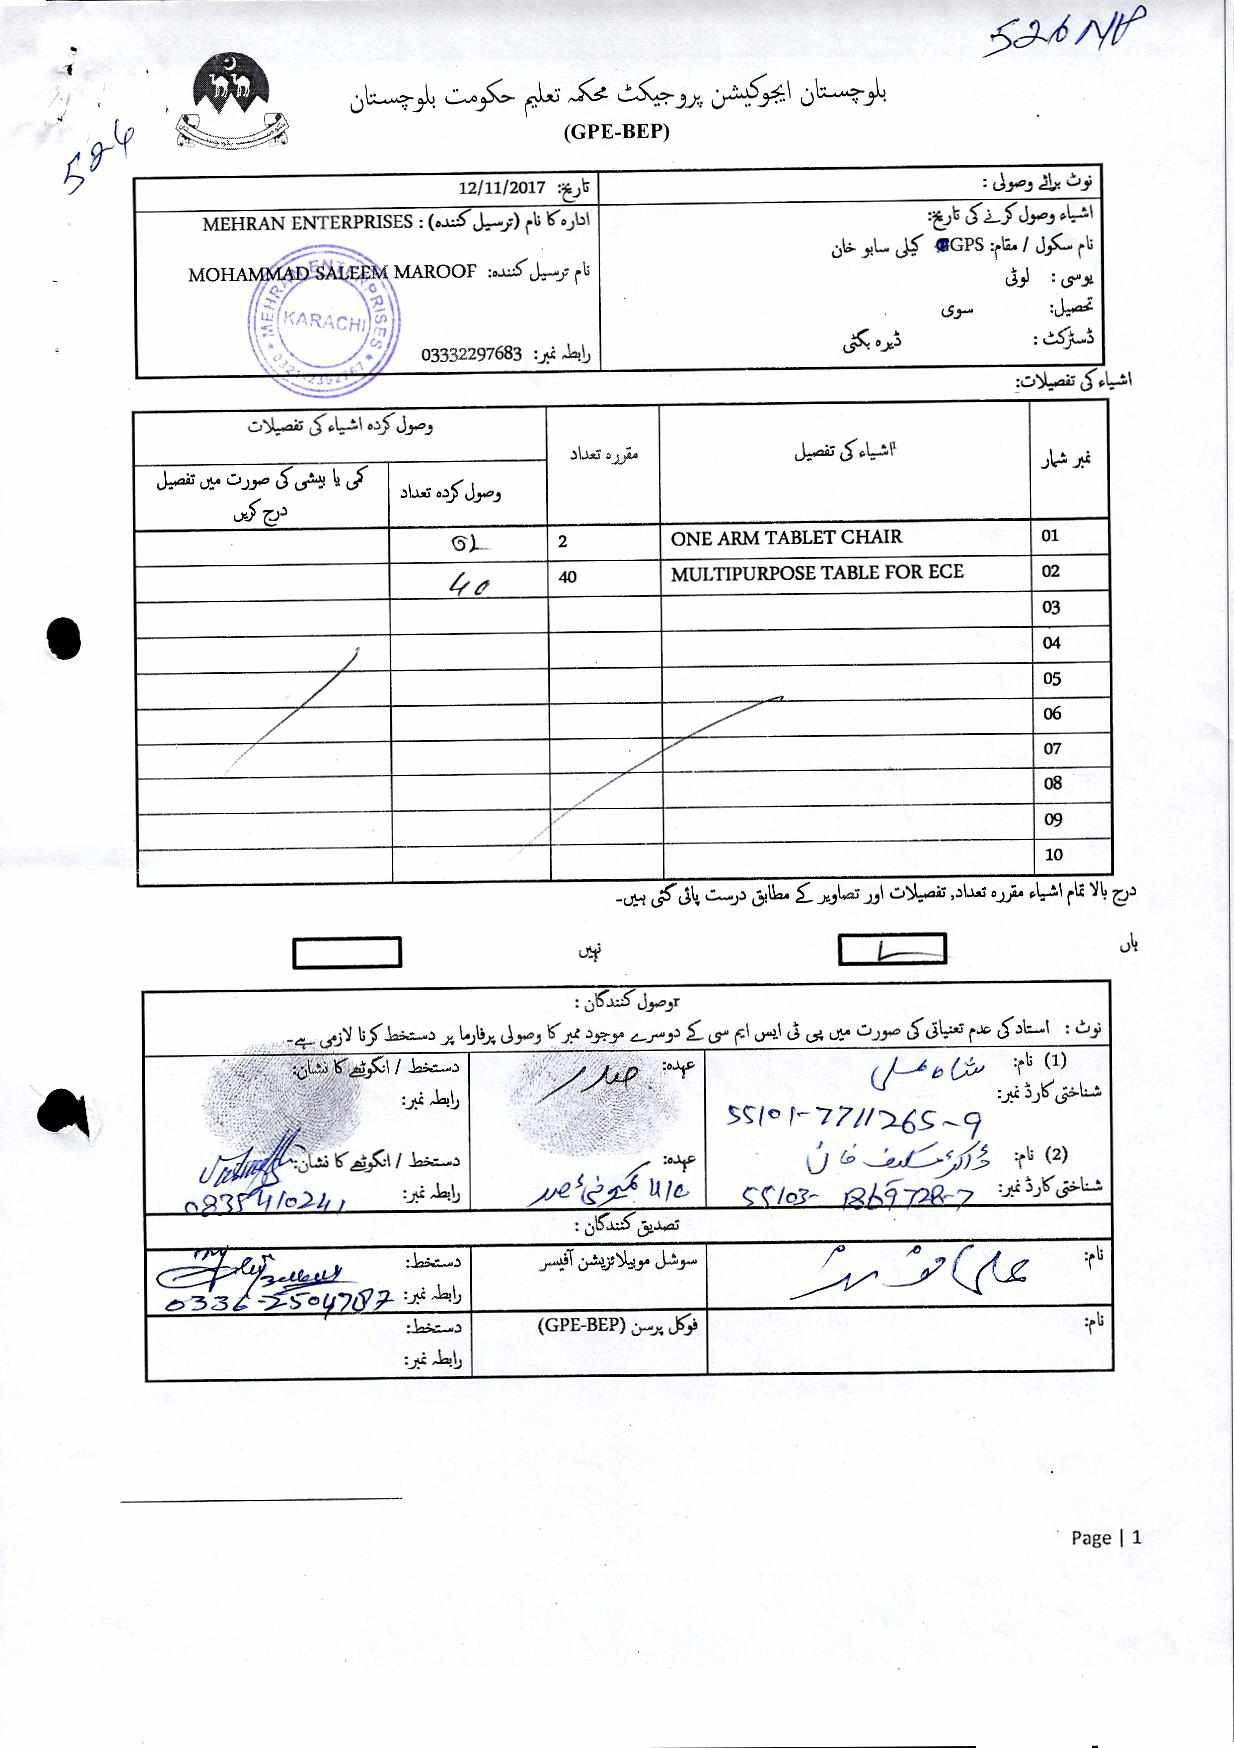 526 NP
526
بلوچستان ایجوکیشن پروجیکٹ محکمہ تعلیم حکومت بلوچستان
(GPE-BEP)
نوٹ برائے وصولی :
تاریخ: 12/11/2017
اشیاء وصول کرنے کی تاریخ:
نام سکول / مقام: GPS کیلی سابو خان
یوسی : لوٹی
تحصیل: سوی
ڈسٹرکٹ : ڈیرہ بگٹی
ادارہ کا نام (ترسیل کنندہ) : MEHRAN ENTERPRISES
نام ترسیل کنندہ: MOHAMMAD SALEEM MAROOF
رابطہ نمبر: 03332297683
MEHRAN ENTERPRISES
KARACHI
اشیاء کی تفصیلات:
نمبر شمار
اشیاء کی تفصیل
مقررہ تعداد
وصول کردہ اشیاء کی تفصیلات
وصول کردہ تعداد
کمی یا بیشی کی صورت میں تفصیل درج کریں
01 ONE ARM TABLET CHAIR 2 02
02 MULTIPURPOSE TABLE FOR ECE 40 40
03
04
05
06
07
08
09
10
درج بالا تمام اشیاء مقررہ تعداد, تفصیلات اور تصاویر کے مطابق درست پائی گئی ہیں۔
ہاں
نہیں
وصول کنندگان :
نوٹ : استاد کی عدم تعنیاتی کی صورت میں پی ٹی ایس ایم سی کے دوسرے موجود ممبر کا وصولی پرفارما پر دستخط کرنا لازمی ہے۔
(1) نام: شاہ علی
عہدہ: صدر
دستخط / انگوٹھے کا نشان:
شناختی کارڈ نمبر:
55101-7711265-9
رابطہ نمبر:
(2) نام:
عہدہ:
دستخط / انگوٹھے کا نشان:
شناختی کارڈ نمبر: 55103-1369728-7
رابطہ نمبر: 0835410241
تصدیق کنندگان :
نام:
سوشل موبیلائزیشن آفیسر
دستخط:
رابطہ نمبر: 0336-2504787
نام:
فوکل پرسن (GPE-BEP)
دستخط:
رابطہ نمبر:
Page | 1